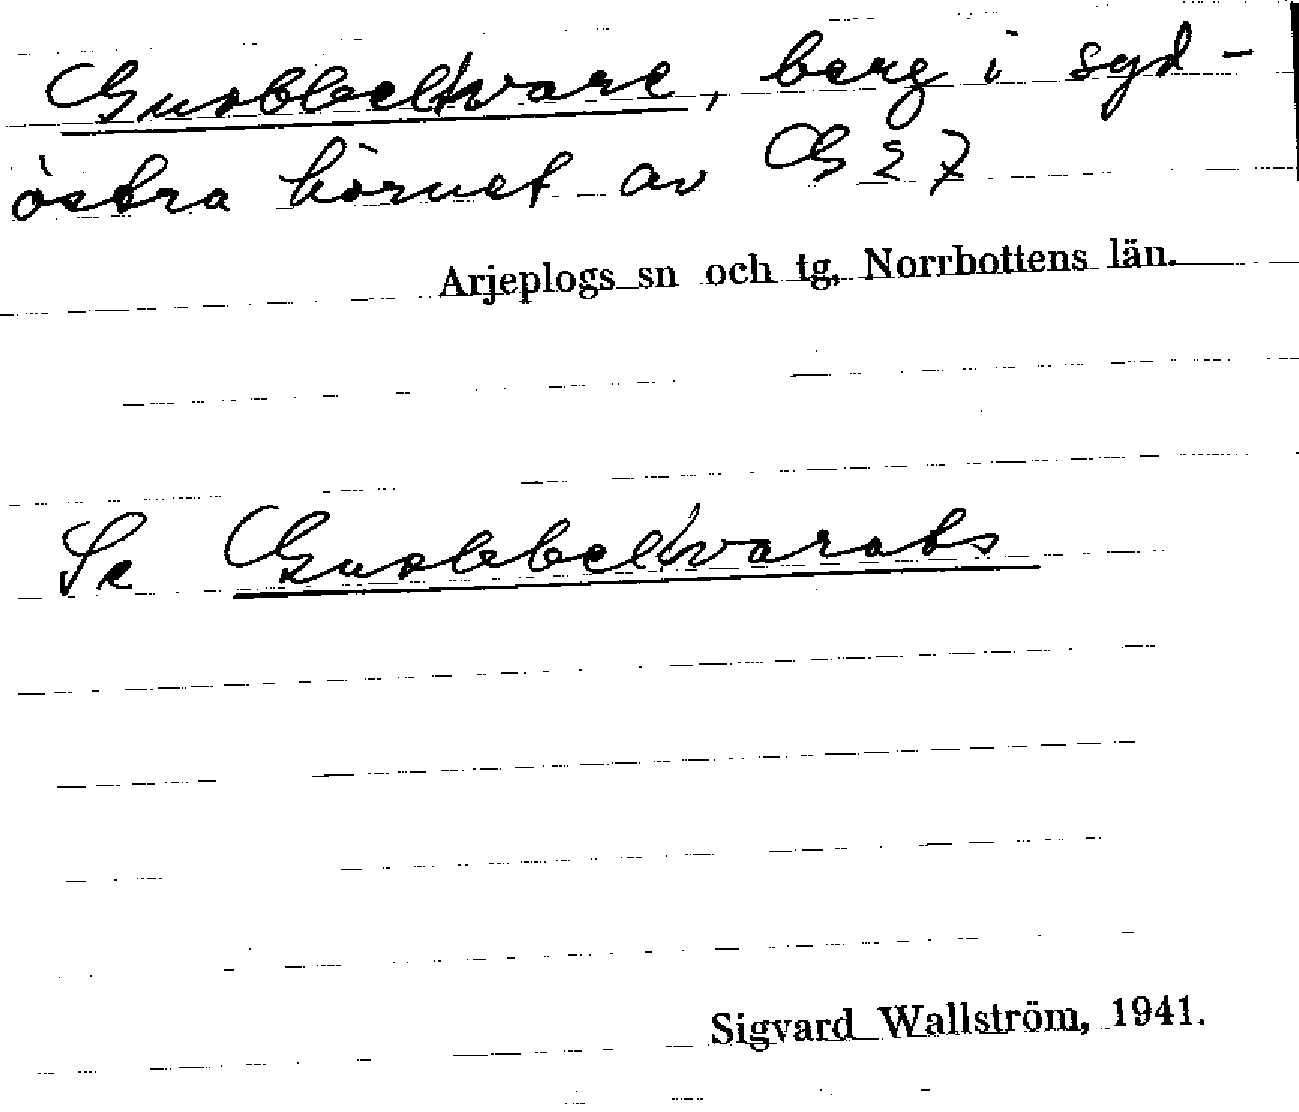 Guobbelvare, berg i syd-
östra hörnet av G 27
Arjeplogs sn och tg, Norrbottens län.
Se Guobbelvarats
Sigvard Wallström, 1941.